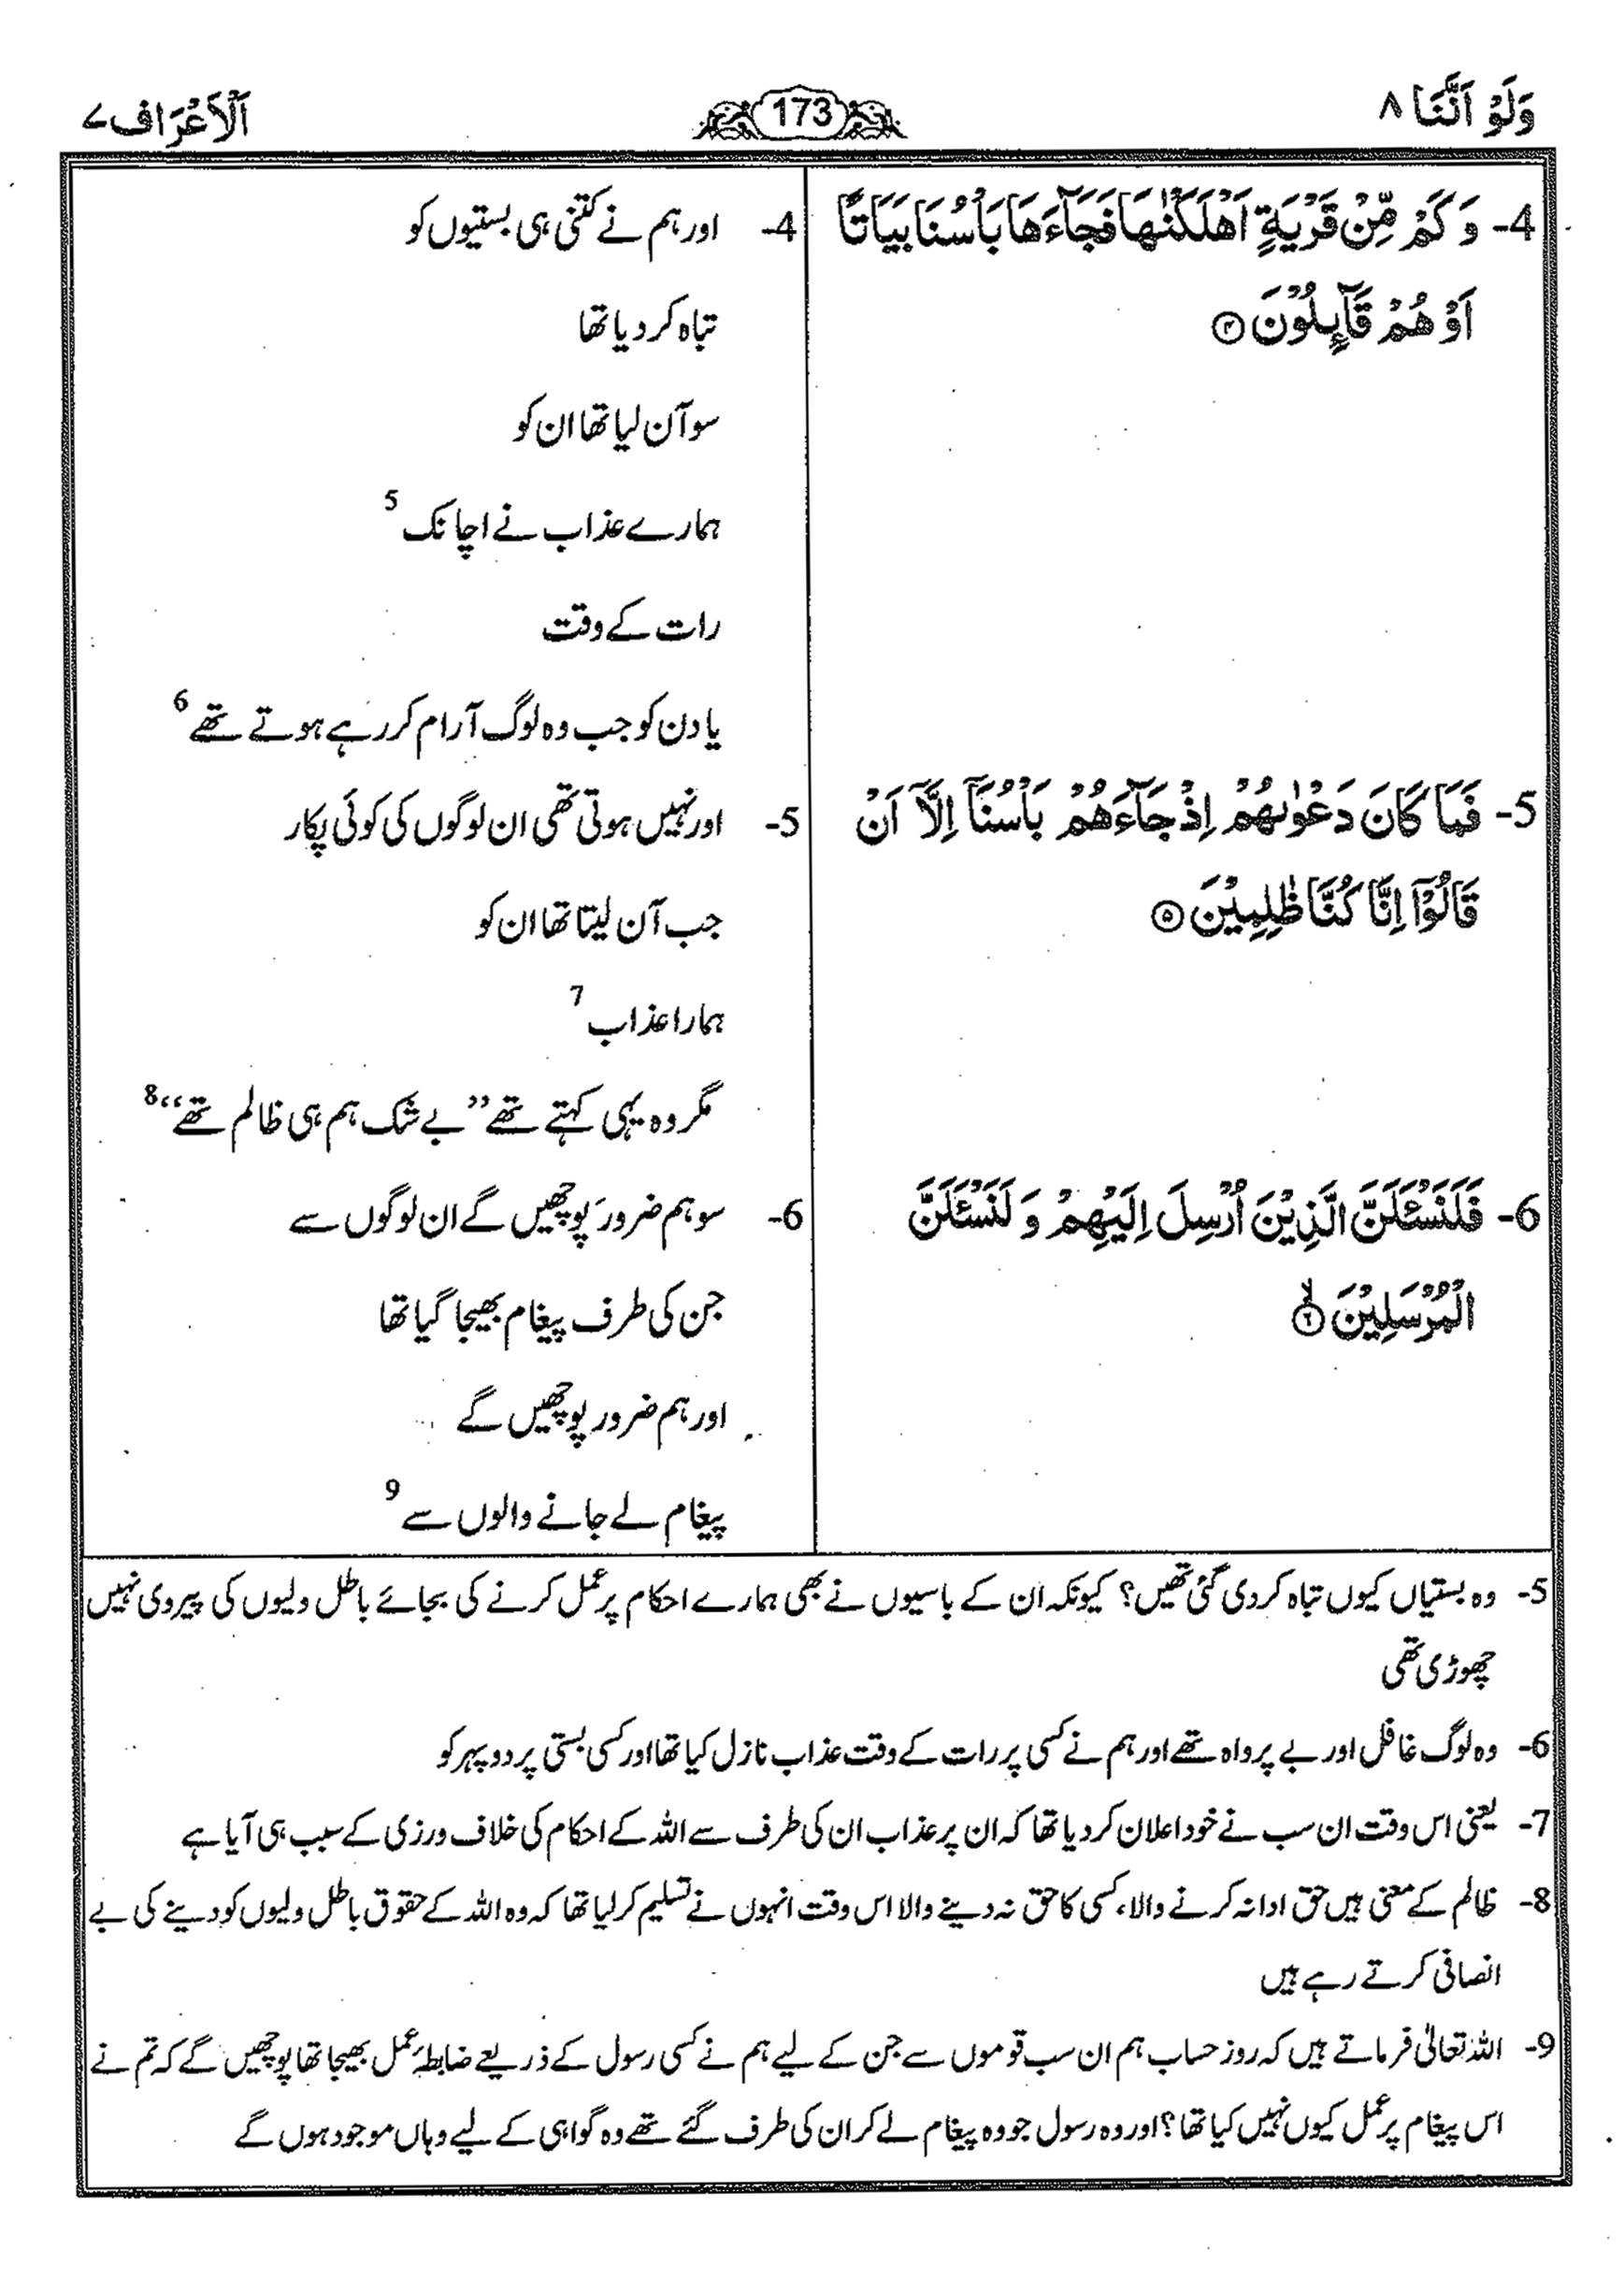 وَلَوْ اَنَّنَا ۸
173
اَلْاَعْرَاف ۷
4- وَ كَمْ مِّنْ قَرْيَةٍ اَهْلَكْنٰهَا فَجَآءَهَا بَاْسُنَا بَيَاتًا
اَوْ هُمْ قَآىِٕلُوْنَ ۝۴
4- اور ہم نے کتنی ہی بستیوں کو
تباہ کر دیا تھا
سو آن لیا تھا ان کو
ہمارے عذاب نے اچانک 5
رات کے وقت
یا دن کو جب وہ لوگ آرام کر رہے ہوتے تھے 6
5- فَمَا كَانَ دَعْوٰىهُمْ اِذْ جَآءَهُمْ بَاْسُنَاۤ اِلَّاۤ اَنْ
قَالُوْۤا اِنَّا كُنَّا ظٰلِمِيْنَ ۝۵
5- اور نہیں ہوتی تھی ان لوگوں کی کوئی پکار
جب آن لیتا تھا ان کو
ہمارا عذاب 7
مگر وہ یہی کہتے تھے ”بے شک ہم ہی ظالم تھے“ 8
6- فَلَنَسْـَٔلَنَّ الَّذِيْنَ اُرْسِلَ اِلَيْهِمْ وَ لَنَسْـَٔلَنَّ
الْمُرْسَلِيْنَ ۙ۝۶
6- سو ہم ضرور پوچھیں گے ان لوگوں سے
جن کی طرف پیغام بھیجا گیا تھا
اور ہم ضرور پوچھیں گے
پیغام لے جانے والوں سے 9
5- وہ بستیاں کیوں تباہ کر دی گئی تھیں؟ کیونکہ ان کے باسیوں نے بھی ہمارے احکام پر عمل کرنے کی بجائے باطل ولیوں کی پیروی نہیں
چھوڑی تھی
6- وہ لوگ غافل اور بے پرواہ تھے اور ہم نے کسی پر رات کے وقت عذاب نازل کیا تھا اور کسی بستی پر دوپہر کو
7- یعنی اس وقت ان سب نے خود اعلان کر دیا تھا کہ ان پر عذاب ان کی طرف سے اللہ کے احکام کی خلاف ورزی کے سبب ہی آیا ہے
8- ظالم کے معنی ہیں حق ادا نہ کرنے والا، کسی کا حق نہ دینے والا اس وقت انہوں نے تسلیم کر لیا تھا کہ وہ اللہ کے حقوق باطل ولیوں کو دینے کی بے
انصافی کرتے رہے ہیں
9- اللہ تعالیٰ فرماتے ہیں کہ روز حساب ہم ان سب قوموں سے جن کے لیے ہم نے کسی رسول کے ذریعے ضابطۂ عمل بھیجا تھا پوچھیں گے کہ تم نے
اس پیغام پر عمل کیوں نہیں کیا تھا؟ اور وہ رسول جو وہ پیغام لے کر ان کی طرف گئے تھے وہ گواہی کے لیے وہاں موجود ہوں گے